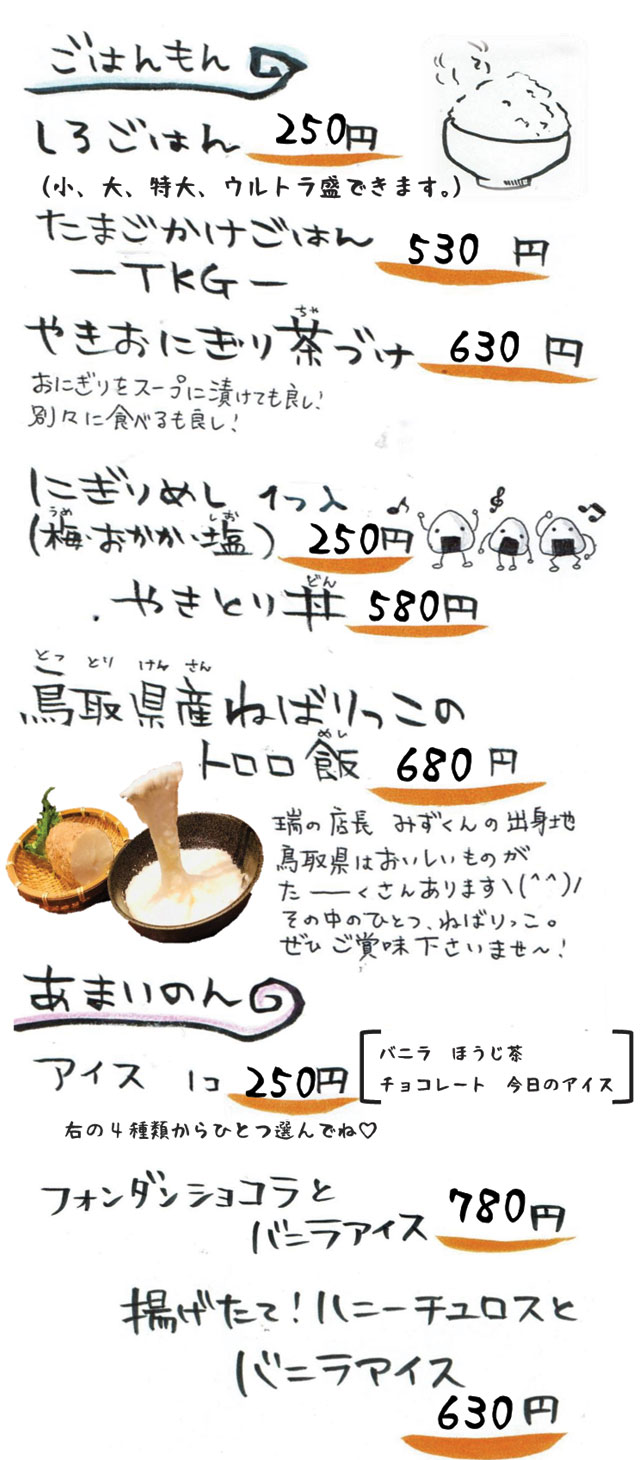 ごはんもん
しろごはん 250円
(小、大、特大、ウルトラ盛できます。)
たまごかけごはん 530円
ーTKGー
ちゃ
やきおにぎり茶づけ 630円
おにぎりをスープに漬けても良し!
別々に食べるも良し!
にぎりめし 1つ入
うめ しお
(梅・おかか・塩) 250円
どん
やきとり丼 580円
とっ とり けん さん
鳥取県産ねばりっこの
めし
トロロ飯 680円
瑞の店長 みずくんの出身地
鳥取県はおいしいものが
たーーくさんあります\(^^)/
その中のひとつ、ねばりっこ。
ぜひご賞味下さいませ〜!
あまいのん
アイス 1コ 250円
バニラ ほうじ茶
チョコレート 今日のアイス
右の4種類からひとつ選んでね♡
フォンダンショコラと
バニラアイス 780円
揚げたて!ハニーチュロスと
バニラアイス
630円